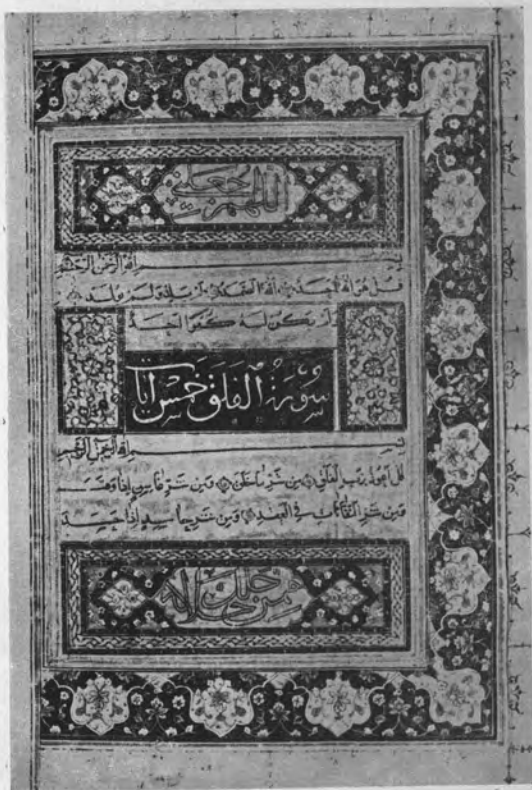 اللهم اجعلني
بسم الله الرحمن الرحيم
قل هو الله احد الله الصمد لم يلد ولم يولد
ولم يكن له كفوا احد
سُورَةُ الفَلَقِ خَمْسُ آيات
بسم الله الرحمن الرحيم
قل اعوذ برب الفلق من شر ما خلق ومن شر غاسق اذا وقب
ومن شر النفاثات في العقد ومن شر حاسد اذا حسد
ممن حلاله